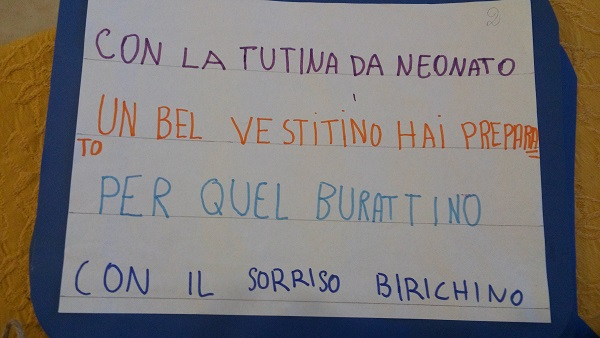 2
CON LA TUTINA DA NEONATO
UN BEL VESTITINO HAI PREPARA
TO
PER QUEL BURATTINO
CON IL SORRISO BIRICHINO